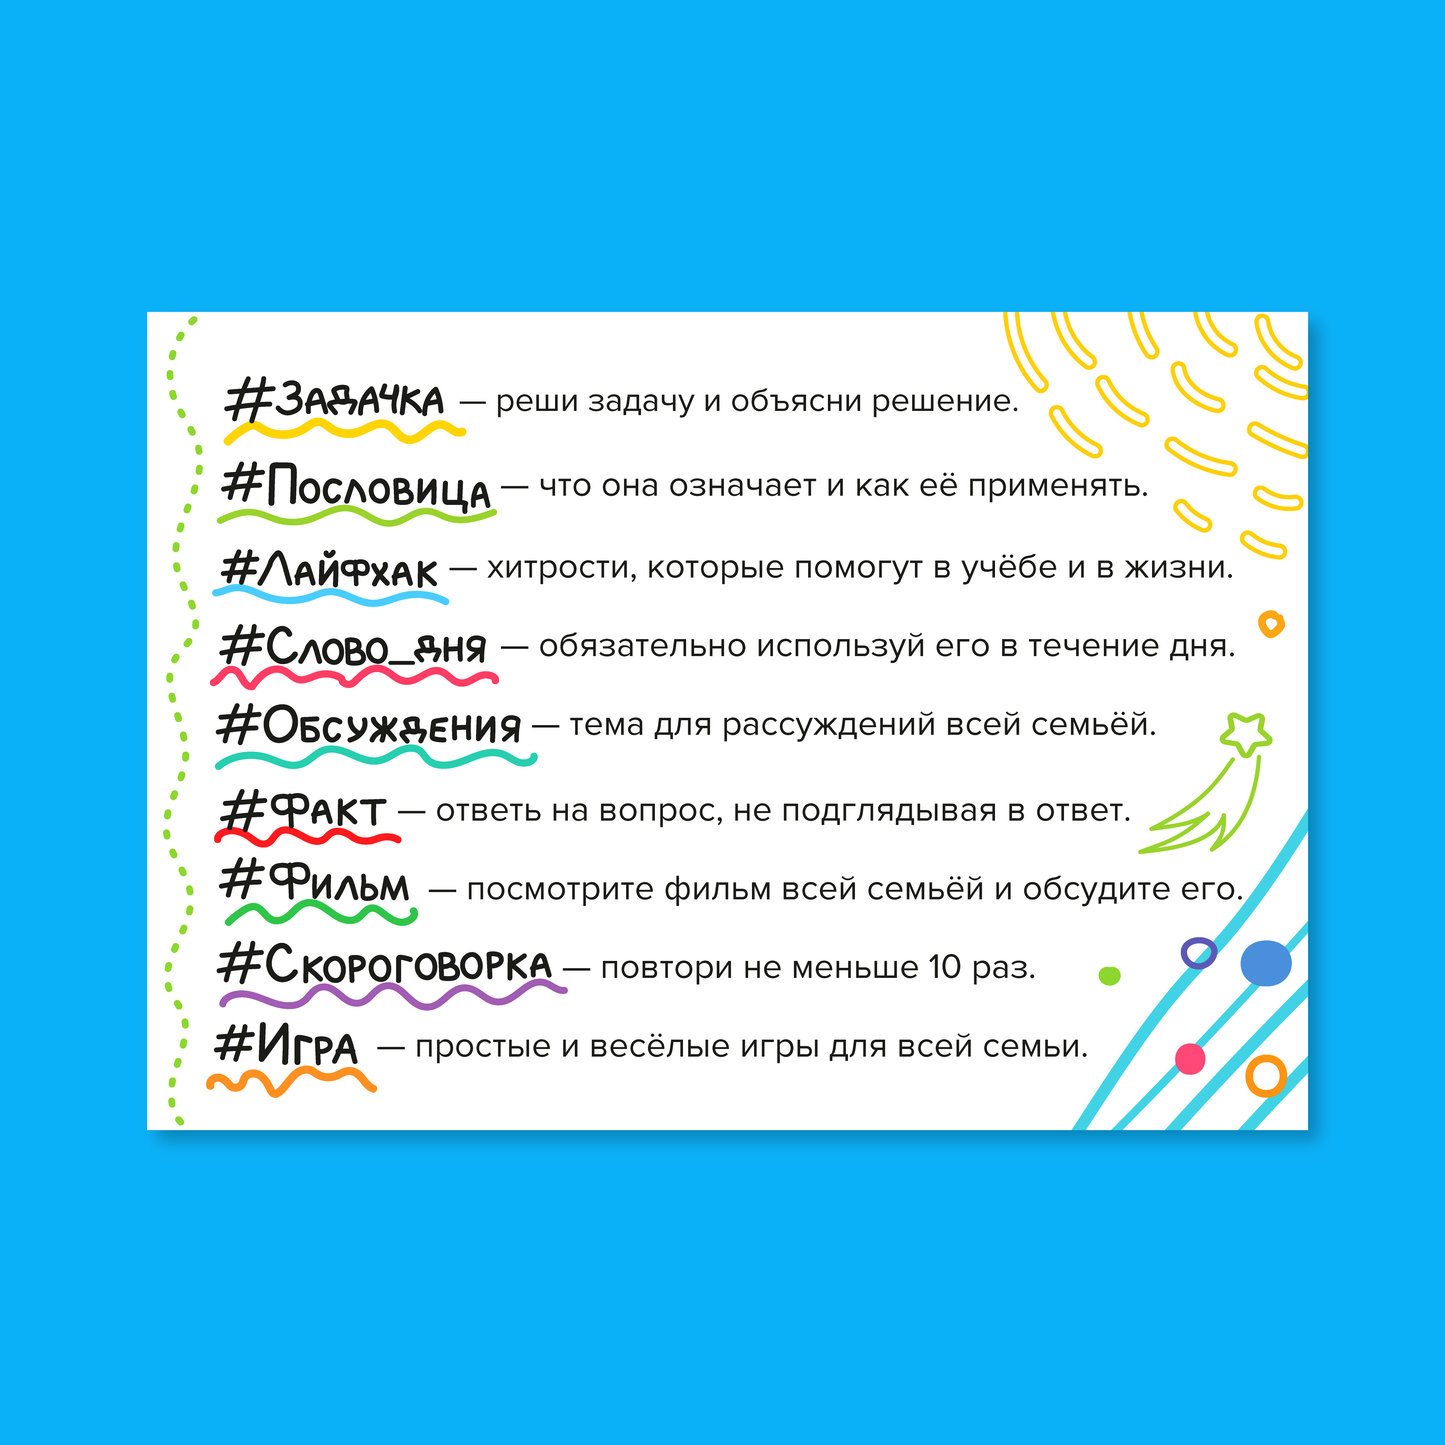 #Задачка — реши задачу и объясни решение.
#Пословица — что она означает и как её применять.
#Лайфхак — хитрости, которые помогут в учёбе и в жизни.
#Слово_дня — обязательно используй его в течение дня.
#Обсуждения — тема для рассуждений всей семьёй.
#Факт — ответь на вопрос, не подглядывая в ответ.
#Фильм — посмотрите фильм всей семьёй и обсудите его.
#Скороговорка — повтори не меньше 10 раз.
#Игра — простые и весёлые игры для всей семьи.